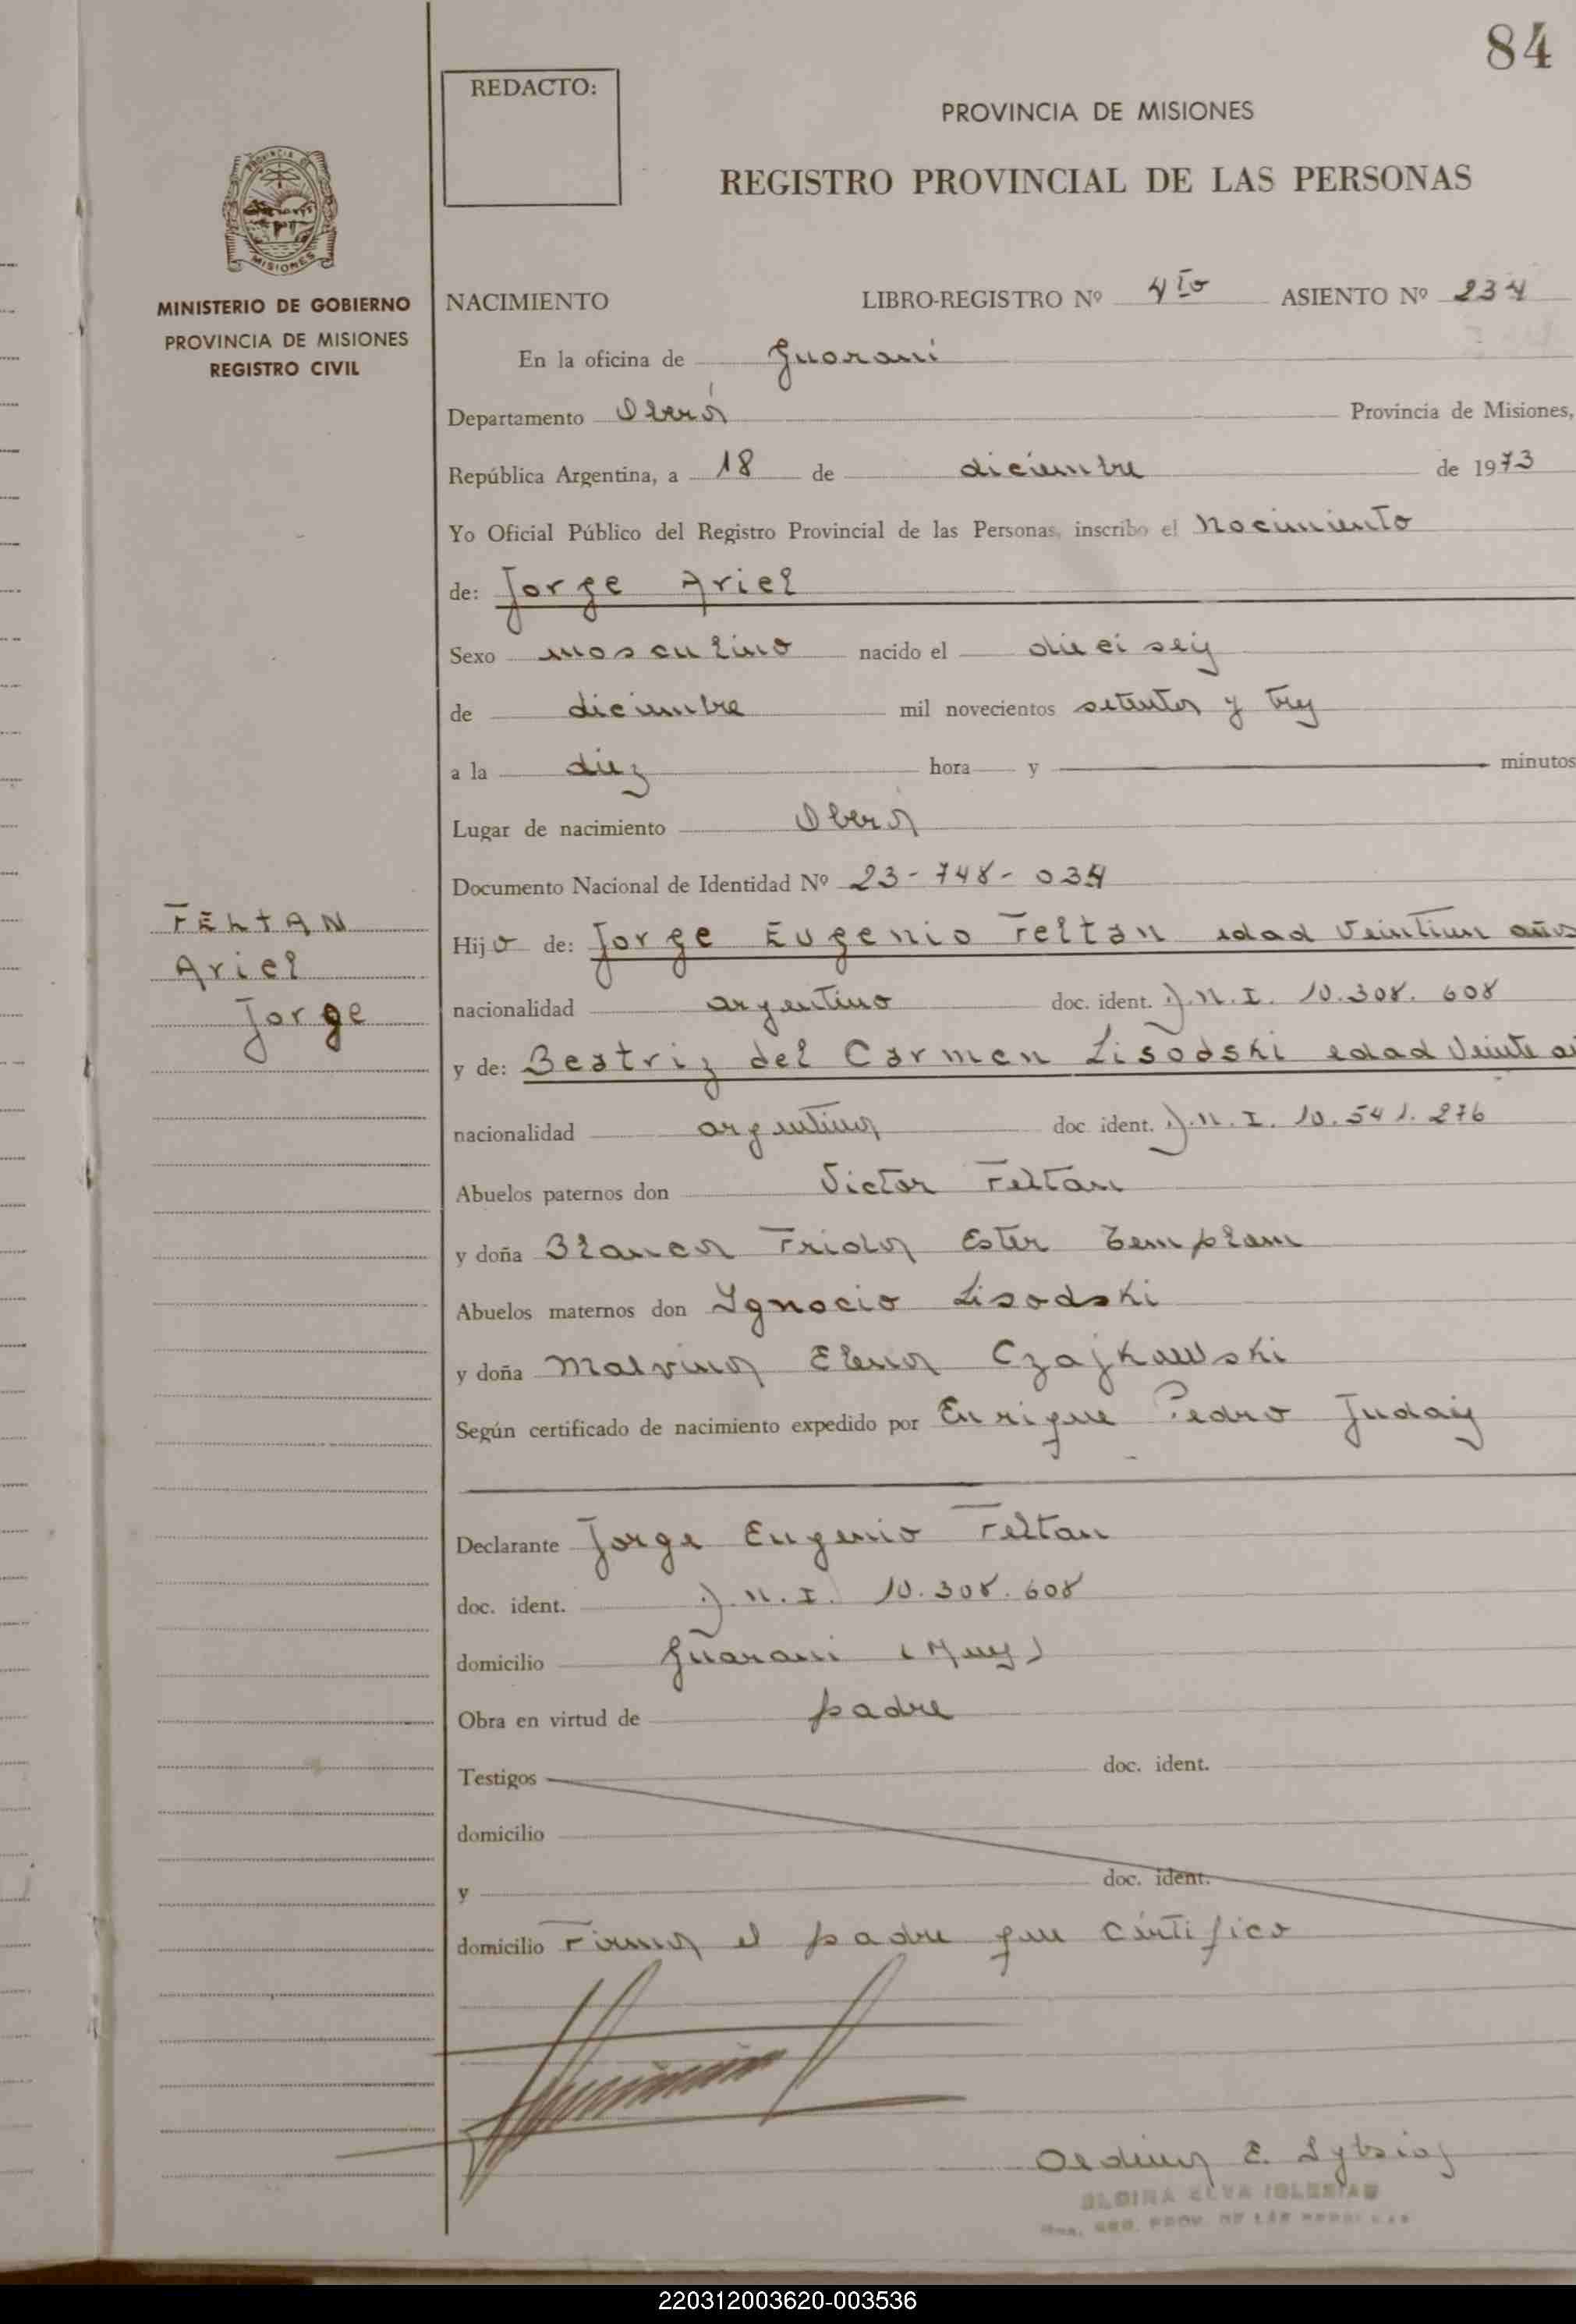 84
REDACTO:
PROVINCIA DE MISIONES
REGISTRO PROVINCIAL DE LAS PERSONAS
PROVINCIA DE
MISIONES
MINISTERIO DE GOBIERNO
PROVINCIA DE MISIONES
REGISTRO CIVIL
NACIMIENTO LIBRO-REGISTRO Nº 4to ASIENTO Nº 234
En la oficina de Guarani
Departamento Oberá Provincia de Misiones,
República Argentina, a 18 de diciembre de 1973
Yo Oficial Público del Registro Provincial de las Personas, inscribo el Nacimiento
de: Jorge Ariel
Sexo masculino nacido el dieciseis
de diciembre mil novecientos setenta y tres
a la diez hora y minutos
Lugar de nacimiento Oberá
Documento Nacional de Identidad Nº 23-748-034
FELTAN
Ariel
Jorge
Hijo de: Jorge Eugenio Feltan edad veintiun años
nacionalidad argentino doc. ident. D.N.I. 10.308.608
y de: Beatriz del Carmen Lisodski edad veinte
nacionalidad argentina doc. ident. D.N.I. 10.541.276
Abuelos paternos don Victor Feltan
y doña Blanca Frida Ester Templam
Abuelos maternos don Ignacio Lisodski
y doña Malvina Elena Czajkawski
Según certificado de nacimiento expedido por Enrique Pedro
Declarante Jorge Eugenio Feltan
doc. ident. D.N.I. 10.308.608
domicilio Guarani (Mnes)
Obra en virtud de padre
Testigos doc. ident.
domicilio
y doc. ident.
domicilio Firma el padre que certifico
E.
ELVA IGLESIAS
REG. PROV. DE LAS PERSONAS
220312003620-003536